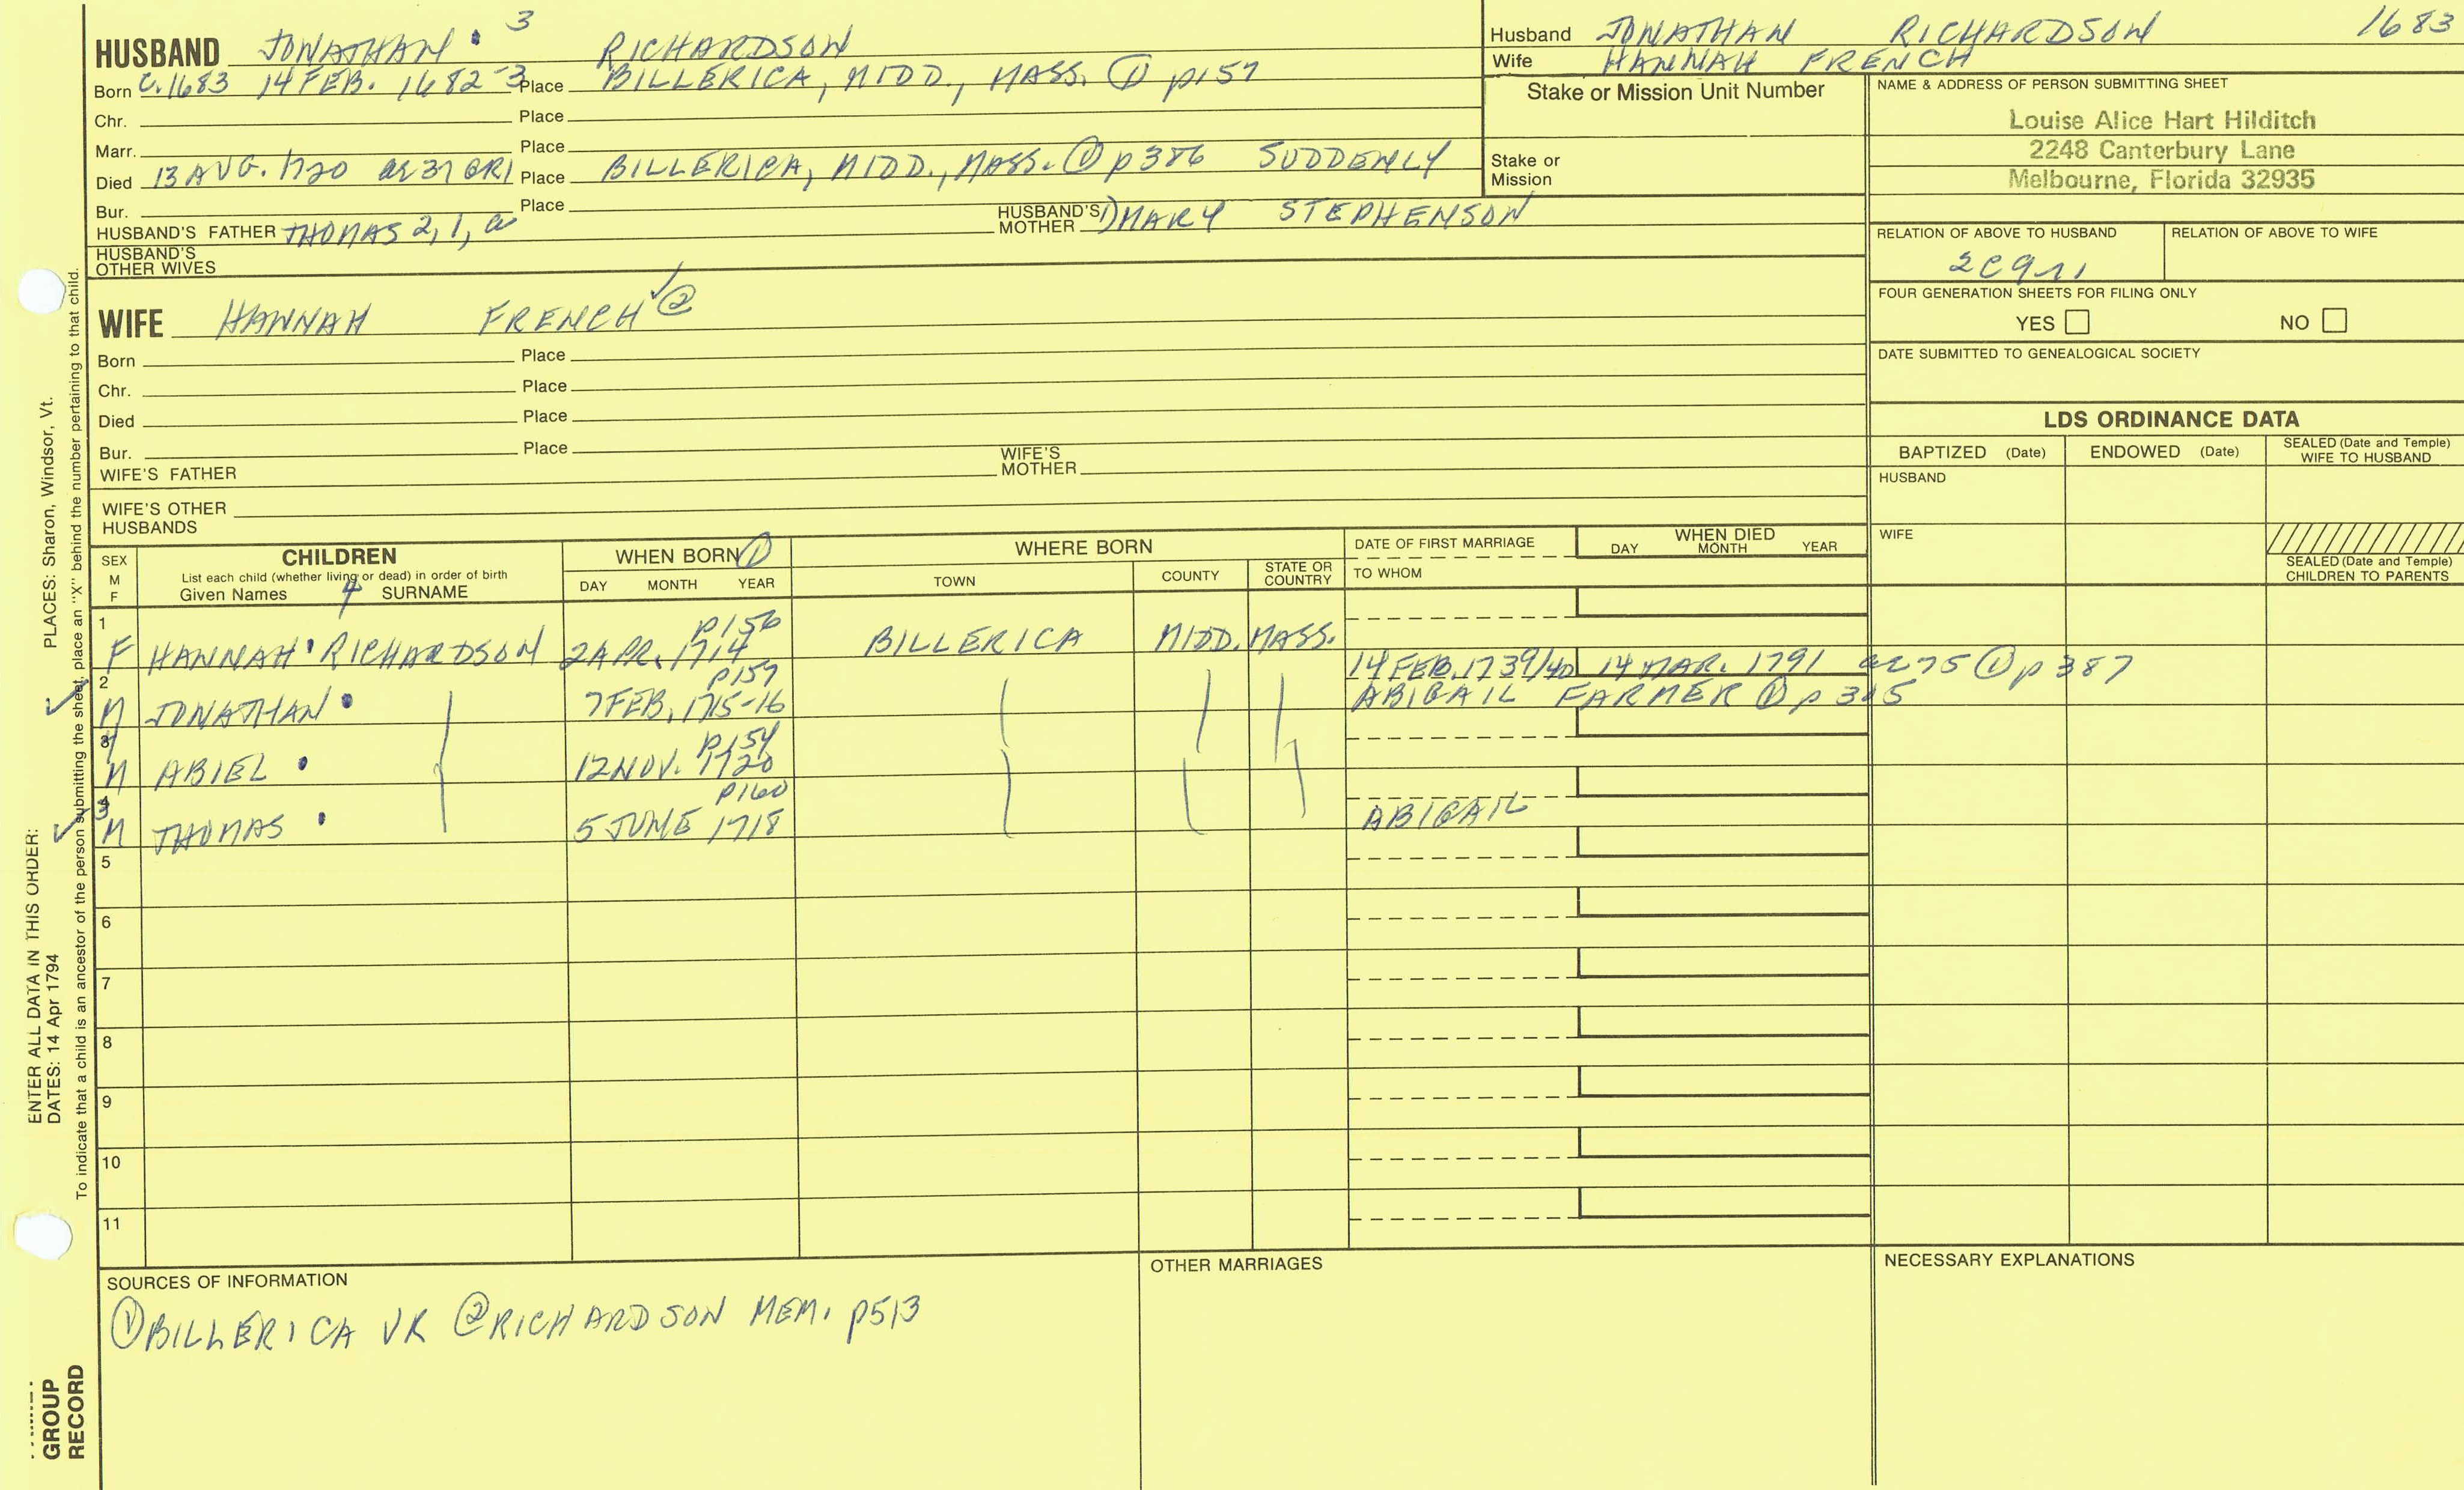 HUSBAND JONATHAN 3 RICHARDSON
Born C.1683 14 FEB. 1682-3 Place BILLERICA, MIDD., MASS. ① p157
Chr. Place
Marr. Place
Died 13 AUG. 1720 ae 37 GR1 Place BILLERICA, MIDD., MASS. ① p386 SUDDENLY
Bur. Place
HUSBAND'S FATHER THOMAS 2, 1, a HUSBAND'S MOTHER 1) MARY STEPHENSON
HUSBAND'S OTHER WIVES
WIFE HANNAH FRENCH ✓②
Born Place
Chr. Place
Died Place
Bur. Place
WIFE'S FATHER WIFE'S MOTHER
WIFE'S OTHER HUSBANDS
Husband JONATHAN RICHARDSON 1683
Wife HANNAH FRENCH
Stake or Mission Unit Number
Stake or Mission
NAME & ADDRESS OF PERSON SUBMITTING SHEET
Louise Alice Hart Hilditch
2248 Canterbury Lane
Melbourne, Florida 32935
RELATION OF ABOVE TO HUSBAND RELATION OF ABOVE TO WIFE
2C9r1
FOUR GENERATION SHEETS FOR FILING ONLY
YES NO
DATE SUBMITTED TO GENEALOGICAL SOCIETY
LDS ORDINANCE DATA
BAPTIZED (Date) ENDOWED (Date) SEALED (Date and Temple) WIFE TO HUSBAND
HUSBAND
WIFE
SEALED (Date and Temple) CHILDREN TO PARENTS
SEX M F
CHILDREN
List each child (whether living or dead) in order of birth
Given Names 4 SURNAME
WHEN BORN ①
DAY MONTH YEAR
WHERE BORN
TOWN COUNTY STATE OR COUNTRY
DATE OF FIRST MARRIAGE
TO WHOM
WHEN DIED
DAY MONTH YEAR
1 p156
F HANNAH RICHARDSON 2 APR. 1714 BILLERICA MIDD. MASS.
2 p157 14 FEB. 1739/40 14 MAR. 1791 ae 75 ① p 387
✓ M JONATHAN 7 FEB. 1715-16 ABIGAIL FARMER ① p 315
3 4 p154
M ABIEL 12 NOV. 1720
4 3 p160
✓ M THOMAS 5 JUNE 1718 ABIGAIL
5
6
7
8
9
10
11
SOURCES OF INFORMATION
① BILLERICA VR ② RICHARDSON MEM. p513
OTHER MARRIAGES
NECESSARY EXPLANATIONS
ENTER ALL DATA IN THIS ORDER:
DATES: 14 Apr 1794 PLACES: Sharon, Windsor, Vt.
To indicate that a child is an ancestor of the person submitting the sheet, place an "X" behind the number pertaining to that child.
GROUP
RECORD